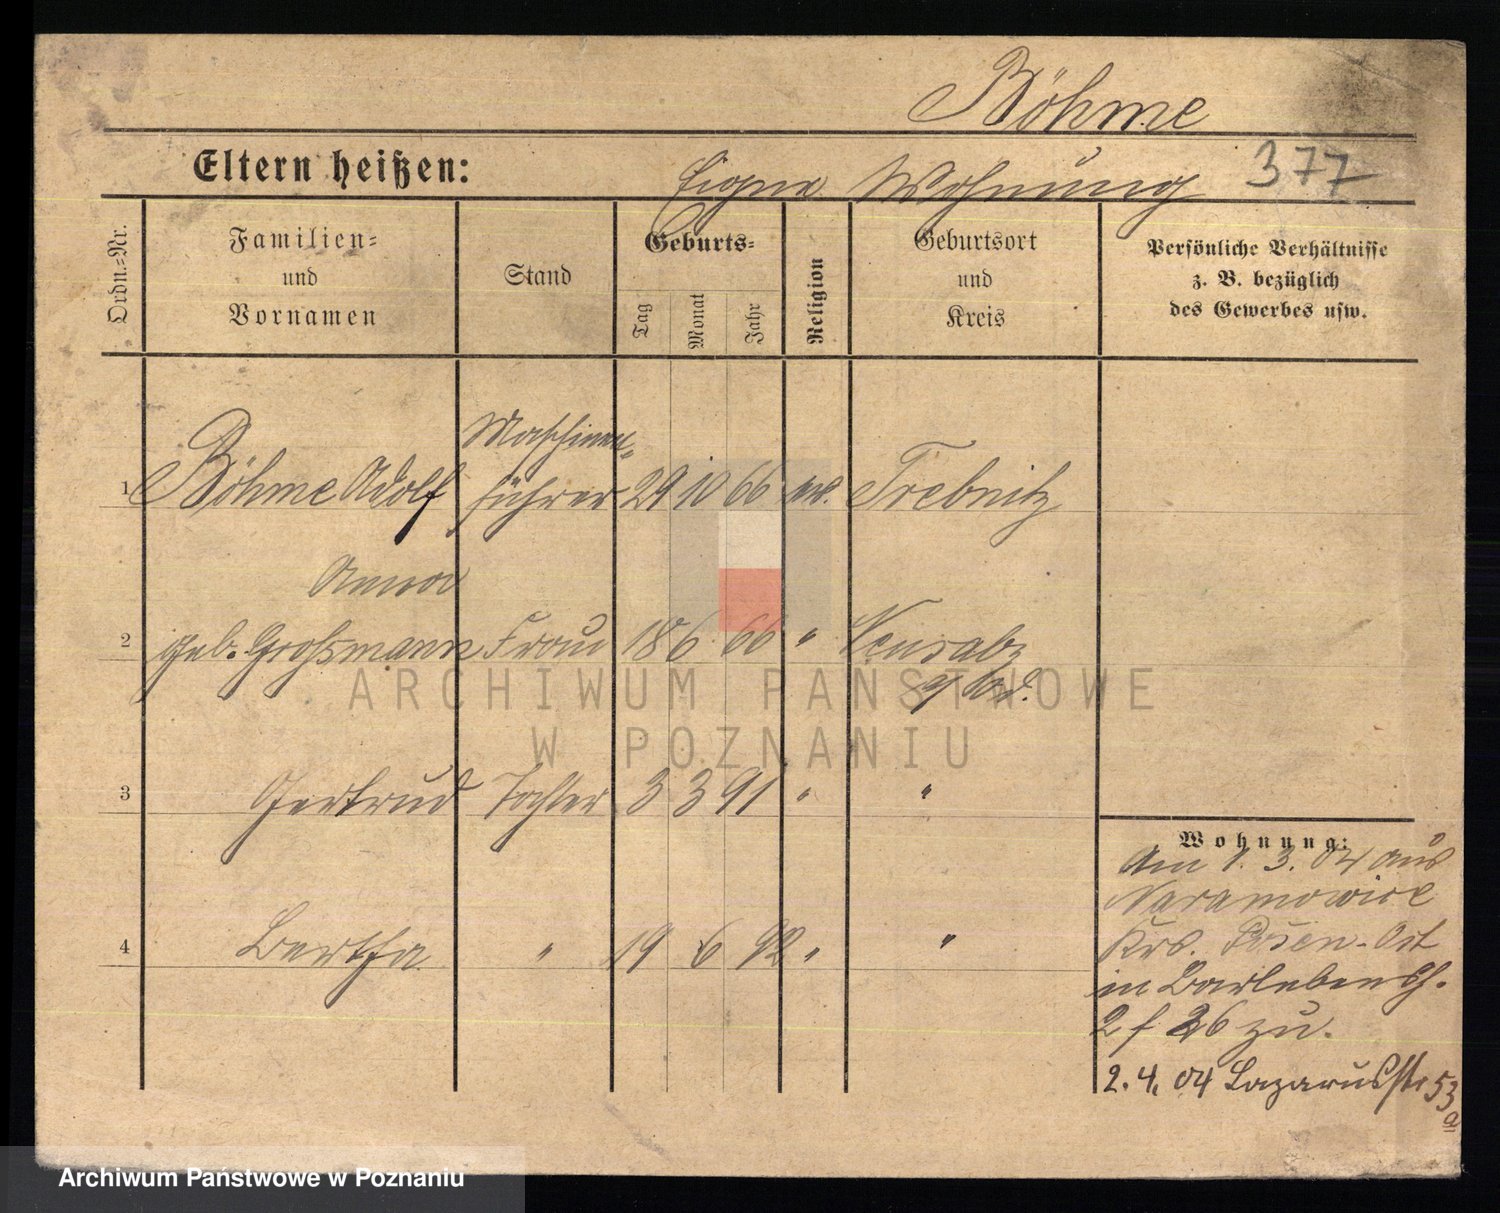 Böhme
Eltern heißen:
Eigene Wohnung 377
Ordn.-Nr.
Familien-
und
Vornamen
Stand
Geburts-
Tag
Monat
Jahr
Religion
Geburtsort
und
Kreis
Persönliche Verhältnisse
z. B. bezüglich
des Gewerbes usw.
Maschinen-
1 Böhme Adolf führer 29 10 66 ev. Trebnitz
Anna
2 geb. Großmann Frau 18 6 66 " Neusalz
a/Od.
3 Gertrud Tochter 3 3 91 " "
4 Bertha " 19 6 92 " "
Wohnung:
Am 1. 3. 04 aus
Naramowice
Krs. Posen-Ost
in
26 zu.
2. 4. 04 Lazarusstr 53
a
ARCHIWUM PAŃSTWOWE
W POZNANIU
Archiwum Państwowe w Poznaniu